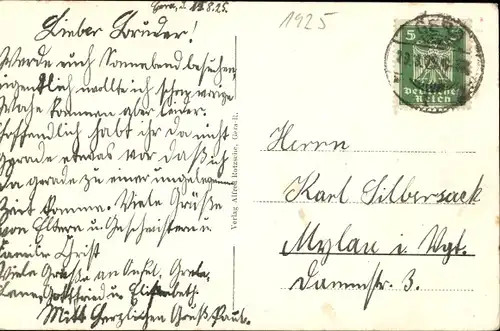 Gera, d. 11.8.25.
Lieber Bruder!
Werde euch Sonnabend besuchen
eigentlich wollte ich schon vorige
Woche kommen aber leider.
Hoffendlich habt ihr da nicht
gerade etwas vor daß ich
da gerade zu einer ungelegenen
Zeit komme. Viele Grüße
von Eltern u Geschwistern u
Christ
Viele Grüße an Onkel, Grete,
Gottfried u. Elisabeth.
Mitt Herzlichen Gruß Paul.
1925
Verlag Alfred Rotzsche, Gera-R.
5
Deutsches
Reich
Herrn
Karl Silbersack
Mylau i. Vgt.
Dammstr. 3.